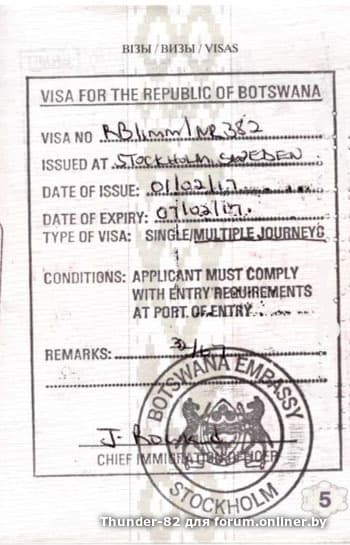 ВІЗЫ / ВИЗЫ / VISAS
VISA FOR THE REPUBLIC OF BOTSWANA
VISA NO RB/imm/NR 382
ISSUED AT STOCKHOLM, SWEDEN
DATE OF ISSUE: 01/02/17
DATE OF EXPIRY: 07/02/17.
TYPE OF VISA: SINGLE/MULTIPLE JOURNEYS
CONDITIONS: APPLICANT MUST COMPLY
WITH ENTRY REQUIREMENTS
AT PORT OF ENTRY
REMARKS:
BOTSWANA EMBASSY
J.
CHIEF IMMIGRATION OFFICER
STOCKHOLM
5
Thunder-82 для forum.onliner.by